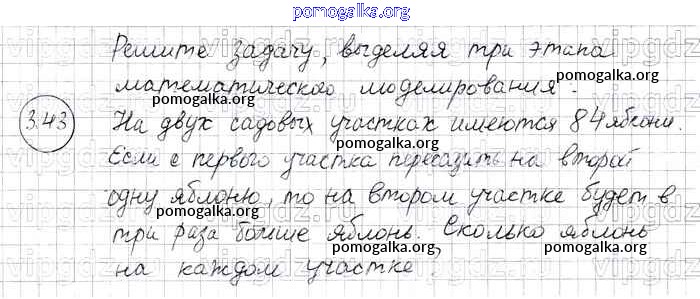 pomogalka.org
Решите задачу, выделяя три этапа
математического моделирования.
pomogalka.org pomogalka.org
3.43 На двух садовых участках имеются 84 яблони.
pomogalka.org pomogalka.org
Если с первого участка пересадить на второй
одну яблоню, то на втором участке будет в
pomogalka.org pomogalka.org
три раза больше яблонь. Сколько яблонь
pomogalka.org pomogalka.org
на каждом участке?